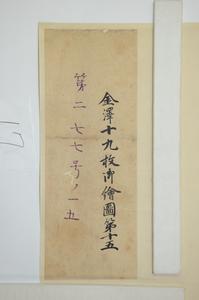 金澤十九枚御繪圖第十五
第二七七号ノ一五